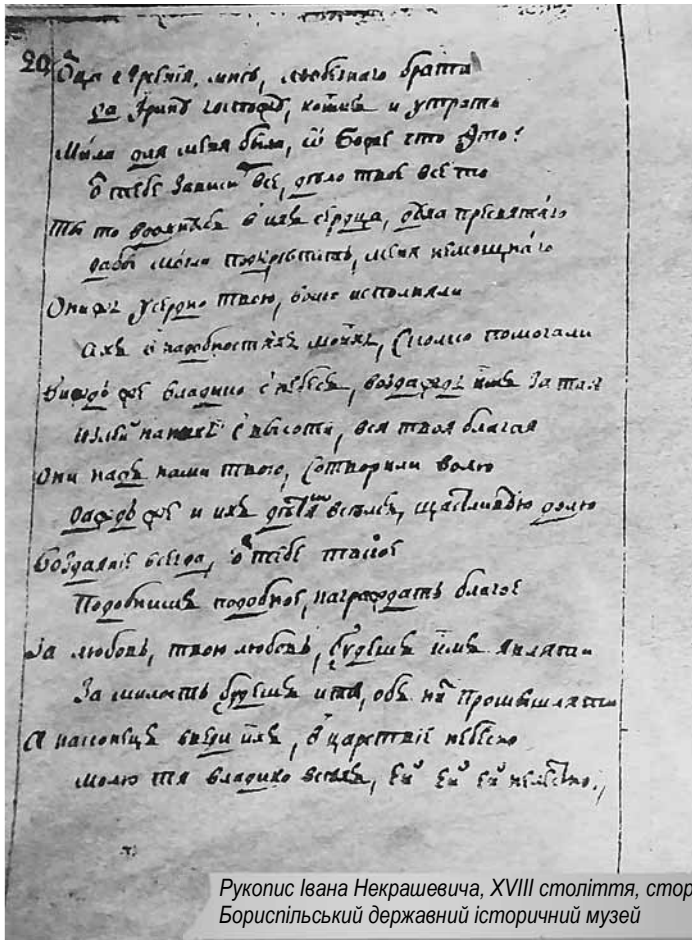 20
мнѣ, любезнаго брата
и утрата
Мила для меня была, ѿ Боже что это?
ѿ тебе все, дѣло твое все то
Ты то в ихъ сердца,
дабы могли меня немощнаго
Они же усердно твою, волю исполняли
А въ надобностяхъ моихъ, сколко помогали
же владико с небесъ, воздаждь имъ за тая
с высоти, вся твоя благая
Они надъ нами твою, сотворили волю
Даждь же и ихъ дѣтямъ всѣмъ, щастливѣю долю
Воздаяніе всегда, ѿ тебе такое
Подобнимъ подобное, награждать благое
За любовь, твою любовь, будешъ имъ являти
За милость будешъ имъ, объ ни промышляти
А наконецъ введи ихъ, в царствіе небесно
Молю тя владико всѣхъ, ей ей ей нелестно.
Рукопис Івана Некрашевича, XVIII століття, стор
Бориспільський державний історичний музей